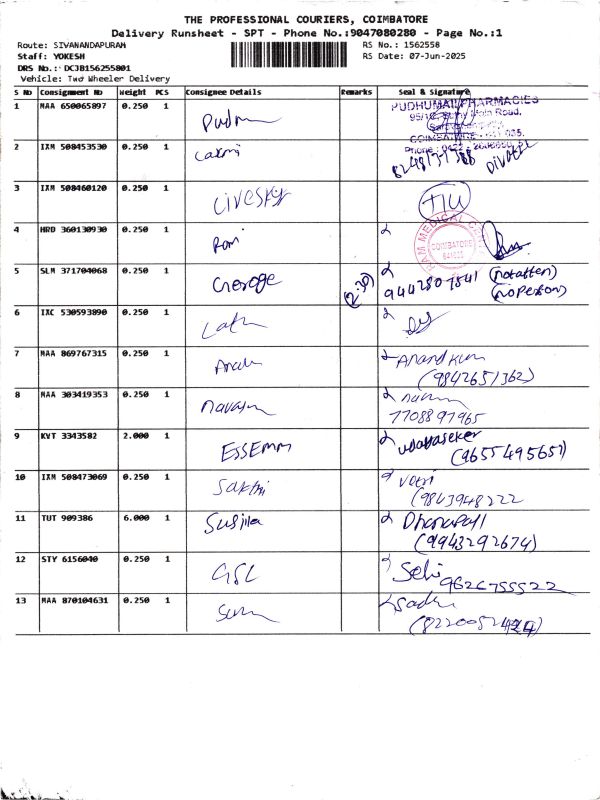 THE PROFESSIONAL COURIERS, COIMBATORE
Delivery Runsheet - SPT - Phone No.:9047080280 - Page No.:1
Route: SIVANANDAPURAM RS No.: 1562558
Staff: YOKESH RS Date: 07-Jun-2025
DRS No.: DCJB156255801
Vehicle: Two Wheeler Delivery
S No Consignment No Weight PCS Consignee Details Remarks Seal & Signature
1 MAA 650065897 0.250 1 PUDHUMAI PHARMACIES
Main Road,
COIMBATORE
Phone
2 IXM 508453530 0.250 1 Laxmi
3 IXM 508460120 0.250 1
4 HRD 360130930 0.250 1 Ram RAM MEDICAL
COIMBATORE
5 SLM 371704068 0.250 1 George (2:30) (notatten)
(noperson)
6 IXC 530593890 0.250 1
7 MAA 869767315 0.250 1 Anandkum
(9842651362)
8 MAA 303419353 0.250 1
7708897965
9 KVT 3343582 2.000 1 ESSEMM udayaseker
(9655495657)
10 IXM 508473069 0.250 1 Sakthi Vetri
(9843948222
11 TUT 909386 6.000 1 Susila Dhanapall
(9943292674)
12 STY 6156040 0.250 1 GSL Selvi 9626755522
13 MAA 870104631 0.250 1